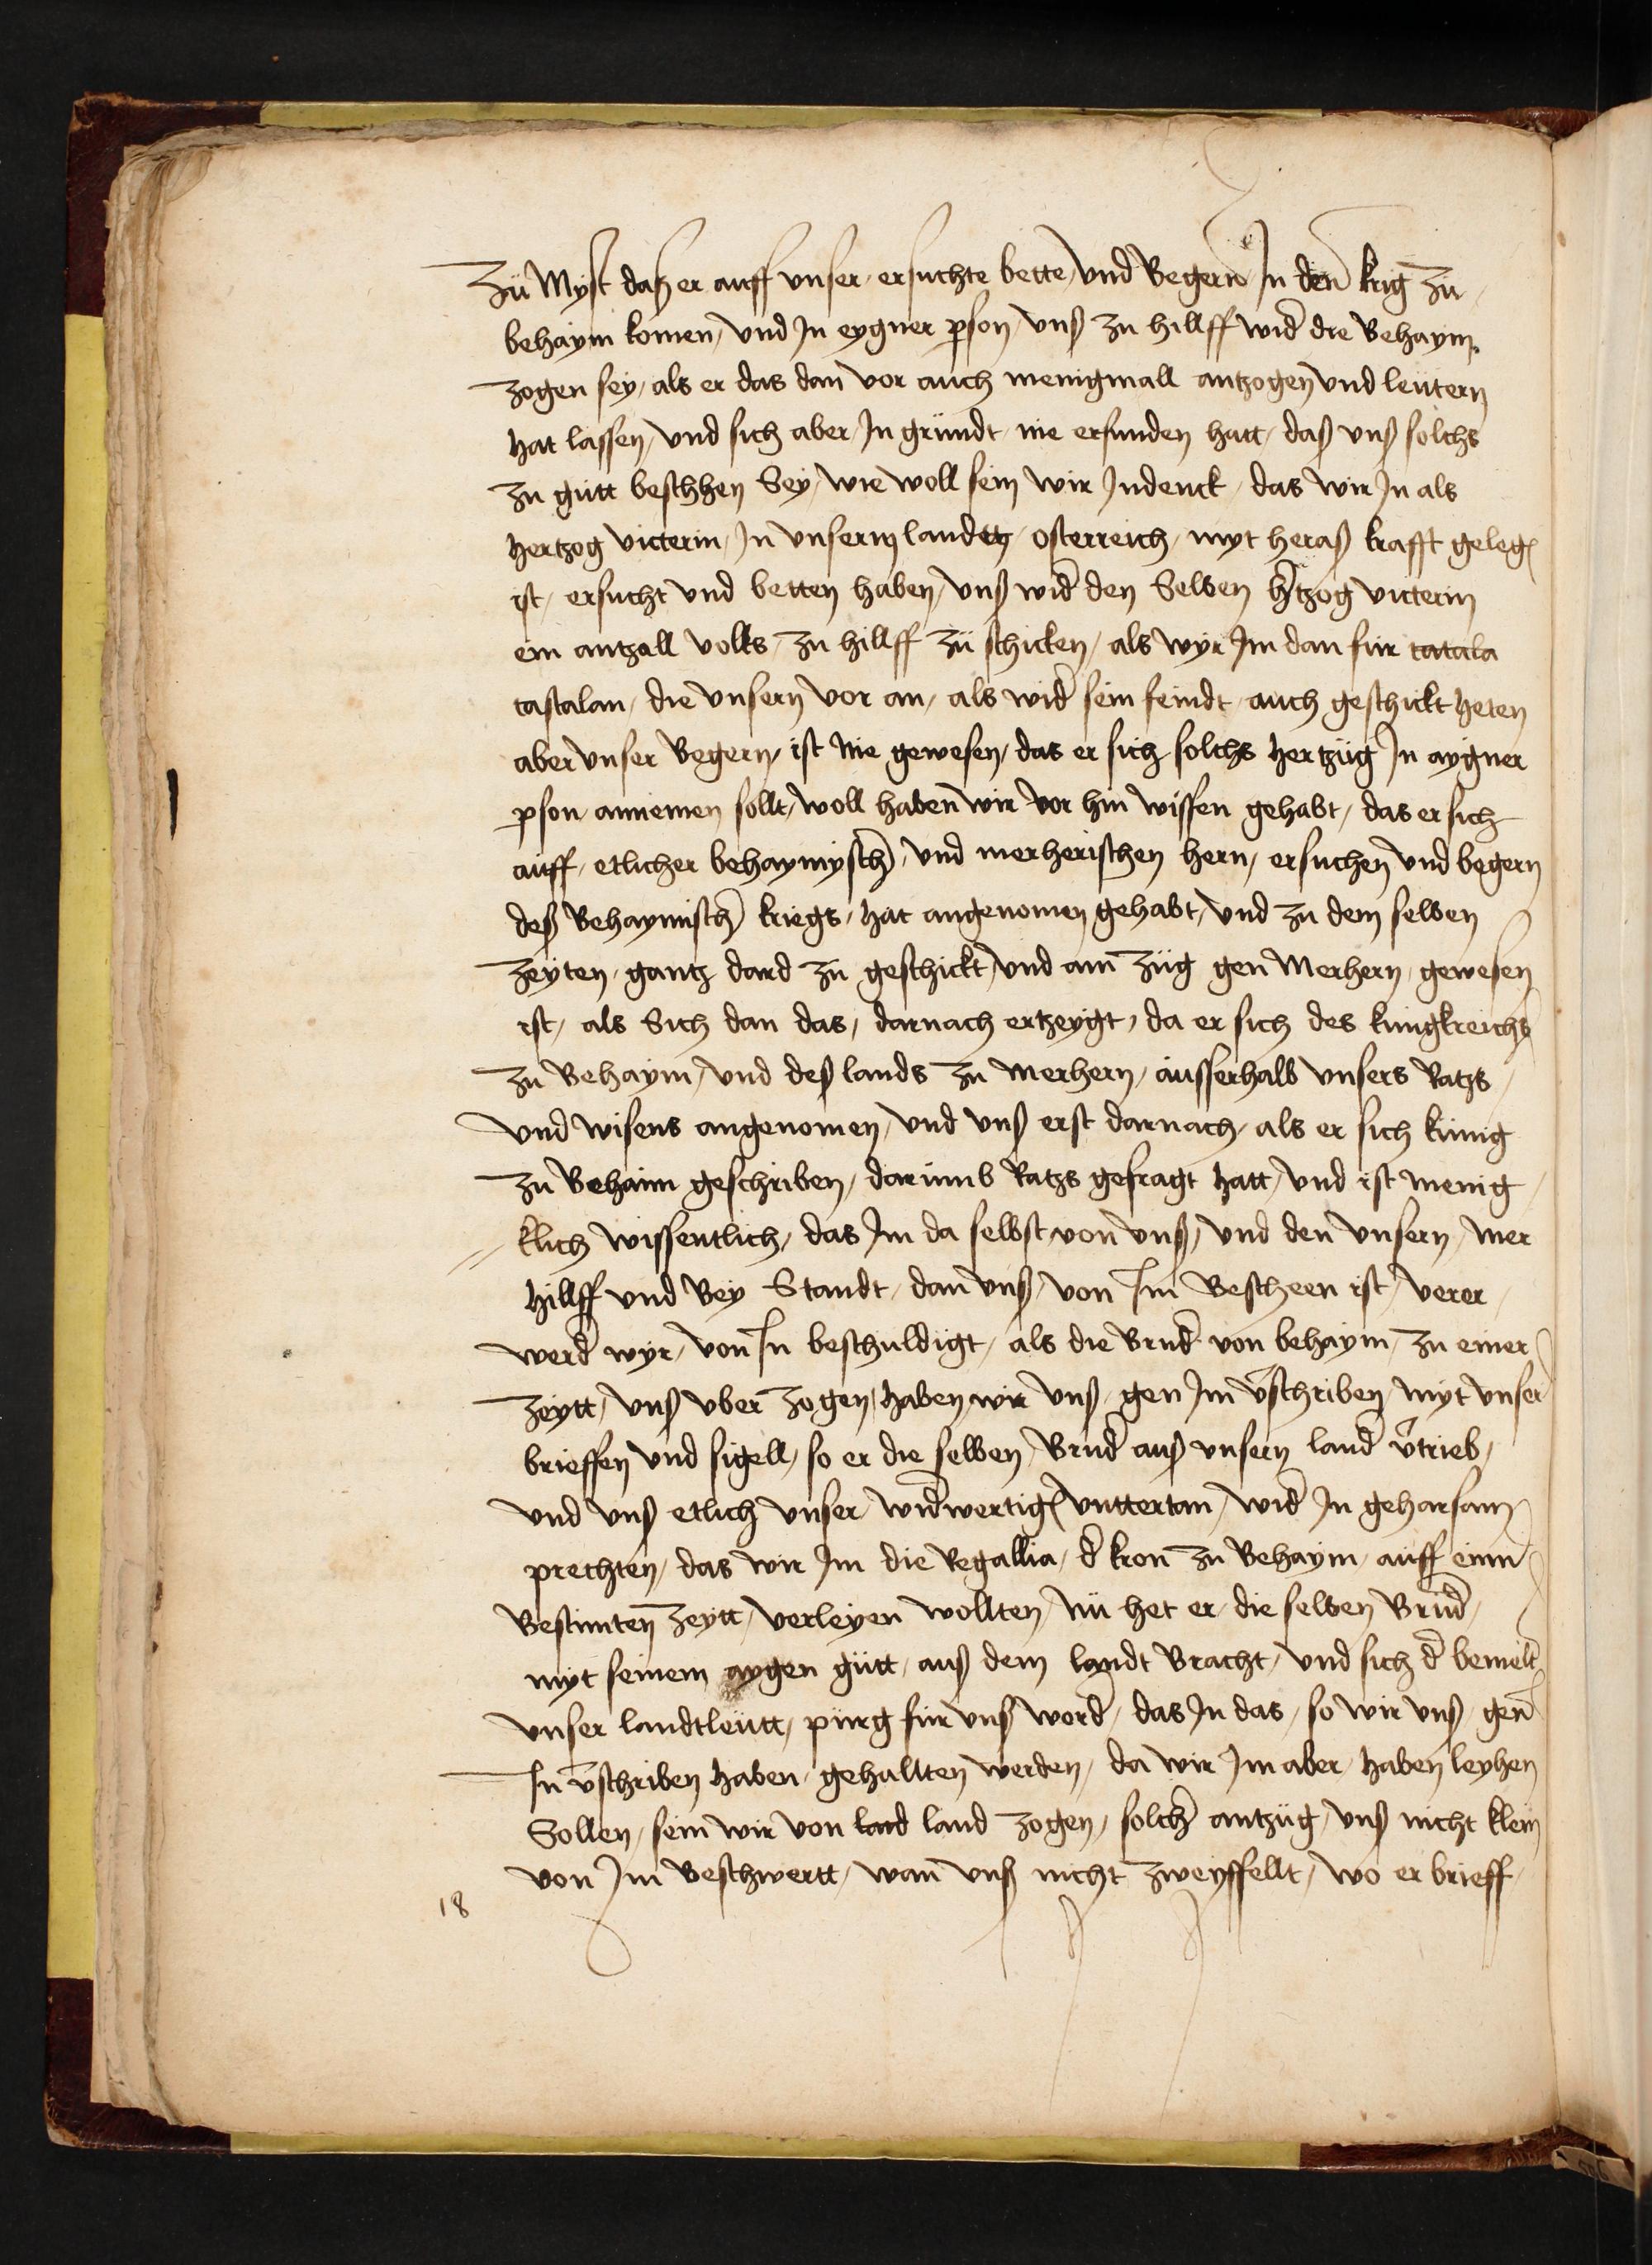 Zu Myst daß er auff vnser ersuchte bette, vnd Begern In den krig zu
behaym komen, vnd In eygner pson, vnß zu hillff wid die Behaym
zogen sey, als er das dan vor auch menigmall antzogen vnd leutern
hat lassen, vnd sich aber In grundt nie erfunden hatt, daß vnß solchs
zu gutt beschhen Sey, wie woll sein wir Indenck, das wir In als
hertzog victerin, In vnserm landen osterreich, myt heraß krafft geleg
ist, ersucht vnd betten haben, vnß wid den Selben htzog victerin
ein antzall volks, zu hillff zu schicken, als wyr Im dan fur catala
castalan, die vnsern vor an, als wid sein feindt, auch geschickt heten
aber vnser Begern, ist nie gewesen, das er sich solchs hertzug In aygner
pson annemen sollt, woll haben wir vor hin wissen gehabt, das er sich
auff, etlicher behaymysch, vnd merherischen hern, ersuchen vnd begern
deß Behaymisch kriegs, hat angenomen gehabt, vnd zu dem selben
zeyten, gantz dard zu geschickt, vnd am zug gen Merhern, gewesen
ist, als Sich dan das, darnach ertzeygt, da er sich des kungkreichs
zu Behaym, vnd deß lands zu merhern, ausserhalb vnsers Ratzs
vnd wisens angenomen, vnd vnß erst darnach, als er sich kunig
zu Behaim geschriben, darumb Ratzs gefragt hatt, vnd ist menig
klich wissentlich, das Im da selbst, von vnß, vnd den vnsern, mer
hillff vnd Bey Standt, dan vnß, von Im Bescheen ist, verer
werd wyr, von In beschuldigt, als die Brud von behaym, zu einer
zeytt, vnß vber zogen, haben wir vnß, gen Im vschriben, myt vnser
brieffen vnd sigell, so er die selben Brud auß vnsern land vtrieb,
vnd vnß etlich vnser, widwertig vnttertan, wid In geharsam
prechten, das wir Im die Regallia, d kron zu Behaym, auff einn
Bestimten zeytt, verleyen wollten, Nu het er, die selben Brud,
myt seinem aygen gutt, auß dem landt Bracht, vnd sich d bemelt
vnser landtleutt, purg fur vnß word, das In das, so wir vnß, gen
In vschriben haben, gehallten werden, da wir Im aber, haben leyhen
Sollen, sein wir von land land zogen, solch antzug, vnß nicht klein
von Im Beschwertt, wan vnß nicht zweyffellt, wo er brieff
18